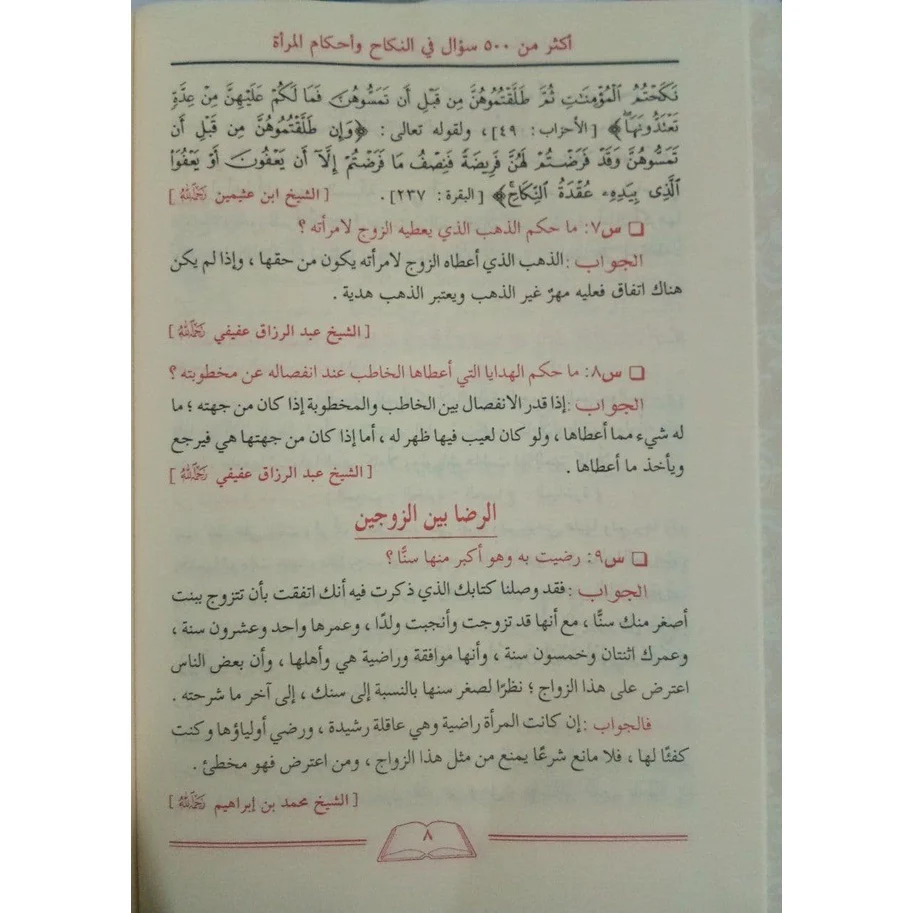 أكثر من ٥٠٠ سؤال في النكاح وأحكام المرأة
نَكَحْتُمُ الْمُؤْمِنَاتِ ثُمَّ طَلَّقْتُمُوهُنَّ مِن قَبْلِ أَن تَمَسُّوهُنَّ فَمَا لَكُمْ عَلَيْهِنَّ مِنْ عِدَّةٍ
تَعْتَدُّونَهَا﴾ [الأحزاب : ٤٩] ، ولقوله تعالى : ﴿وَإِن طَلَّقْتُمُوهُنَّ مِن قَبْلِ أَن
تَمَسُّوهُنَّ وَقَدْ فَرَضْتُمْ لَهُنَّ فَرِيضَةً فَنِصْفُ مَا فَرَضْتُمْ إِلَّا أَن يَعْفُونَ أَوْ يَعْفُوَا
الَّذِي بِيَدِهِ عُقْدَةُ النِّكَاحِ﴾ [البقرة : ٢٣٧] . [ الشيخ ابن عثيمين رحمه الله ]
❑ س٧: ما حكم الذهب الذي يعطيه الزوج لامرأته ؟
الجواب : الذهب الذي أعطاه الزوج لامرأته يكون من حقها ، وإذا لم يكن
هناك اتفاق فعليه مهرٌ غير الذهب ويعتبر الذهب هدية .
[ الشيخ عبد الرزاق عفيفي رحمه الله ]
❑ س٨: ما حكم الهدايا التي أعطاها الخاطب عند انفصاله عن مخطوبته ؟
الجواب : إذا قدر الانفصال بين الخاطب والمخطوبة إذا كان من جهته ؛ ما
له شيء مما أعطاها ، ولو كان لعيب فيها ظهر له ، أما إذا كان من جهتها هي فيرجع
ويأخذ ما أعطاها . [ الشيخ عبد الرزاق عفيفي رحمه الله ]
الرضا بين الزوجين
❑ س٩: رضيت به وهو أكبر منها سنًّا ؟
الجواب : فقد وصلنا كتابك الذي ذكرت فيه أنك اتفقت بأن تتزوج ببنت
أصغر منك سنًّا ، مع أنها قد تزوجت وأنجبت ولدًا ، وعمرها واحد وعشرون سنة ،
وعمرك اثنتان وخمسون سنة ، وأنها موافقة وراضية هي وأهلها ، وأن بعض الناس
اعترض على هذا الزواج ؛ نظرًا لصغر سنها بالنسبة إلى سنك ، إلى آخر ما شرحته .
فالجواب : إن كانت المرأة راضية وهي عاقلة رشيدة ، ورضي أولياؤها وكنت
كفئًا لها ، فلا مانع شرعًا يمنع من مثل هذا الزواج ، ومن اعترض فهو مخطئ .
[ الشيخ محمد بن إبراهيم رحمه الله ]
٨